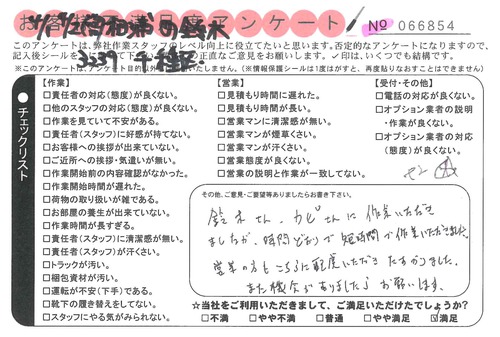 お客様満足度アンケート
№ 066854
このアンケートは、弊社作業スタッフのレベル向上に役立てたいと思います。否定的なアンケートになりますので、
記入後シールを の正直なご意見をお願いします。✓印は、いくつでも結構です。
※このアンケートは、アンケート目的以外 (※情報保護シールは1度はがすと、再度貼りなおすことはできません)
チェックリスト
【作業】
□責任者の対応(態度)が良くない。
□他のスタッフの対応(態度)が良くない。
□作業を見ていて不安がある。
□責任者(スタッフ)に好感が持てない。
□お客様への挨拶が出来ていない。
□ご近所への挨拶・気遣いが無い。
□作業開始前の内容確認がなかった。
□作業開始時間が遅れた。
□荷物の取り扱いが雑である。
□お部屋の養生が出来ていない。
□作業時間が長すぎる。
□責任者(スタッフ)に清潔感が無い。
□責任者(スタッフ)が汗くさい。
□トラックが汚い。
□梱包資材が汚い。
□運転が不安(下手)である。
□靴下の履き替えをしてない。
□スタッフにやる気がみられない。
【営業】
□見積もり時間に遅れた。
□見積もり時間が長い。
□営業マンに清潔感が無い。
□営業マンが煙草くさい。
□営業マンが汗くさい。
□営業態度が良くない。
□営業の説明と作業が一致してない。
【受付・その他】
□電話の対応が良くない。
□オプション業者の説明
・作業が良くない。
□オプション業者の対応
(態度)が良くない。
その他、ご意見・ご要望等ありましたらお書き下さい。
鈴木さん、カビさんに作業いただき
ましたが、時間どおりで短時間で作業いただきました。
営業の方もこちらに配慮いただき たすかりました。
また機会がありましたらお願います。
☆当社をご利用いただきまして、ご満足いただけたでしょうか?
□不満 □やや不満 □普通 □やや満足 ☑満足